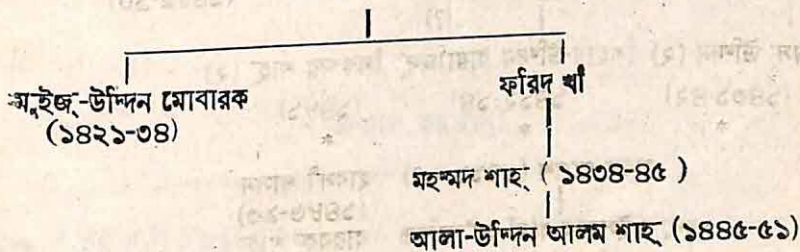 মুইজ্-উদ্দিন মোবারক
(১৪২১-৩৪)
ফরিদ খাঁ
মহম্মদ শাহ্ (১৪৩৪-৪৫)
আলা-উদ্দিন আলম শাহ্ (১৪৪৫-৫১)